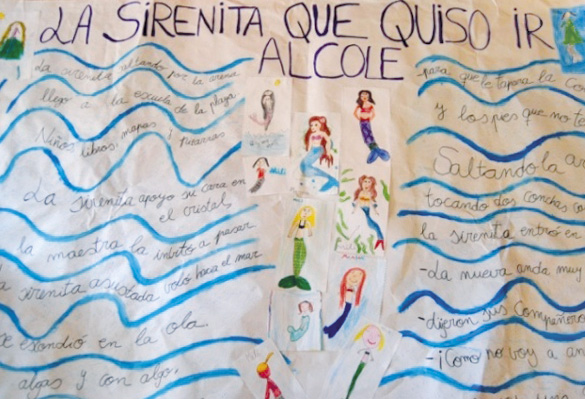 LA SIRENITA QUE QUISO IR
ALCOLE
La sirenita saltando por la arena
llego a la escuela de la playa
Niños libros mapas y pizarras
La sirenita apoyo su cara en
el cristal,
la maestra la invitó a pasar
sirenita asustada voló hacia el mar
escondió en la ola.
algas y con algo.
-para que le tapara la co
Y los pies que no te
Saltando la ar
tocando dos conchas co
la sirenita entró en
-La nueva anda muy
-dijeron sus compañero
-¡Como no voy a an